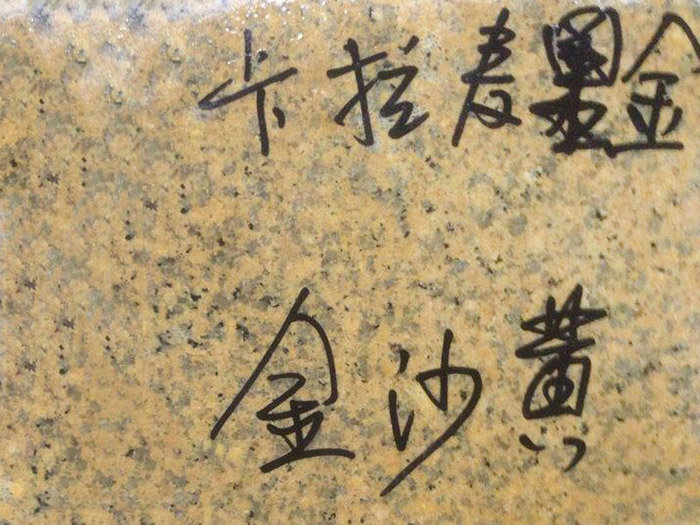 卡拉麦金
金沙黄